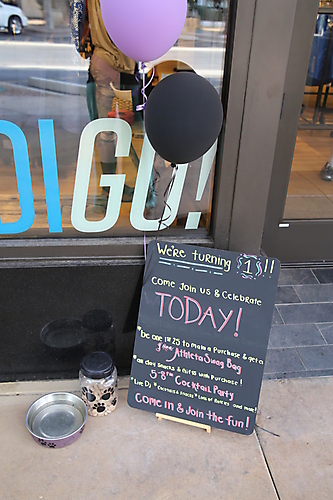 DIGO!
We're turning 1!!
Come Join us & Celebrate
TODAY!
*be one 1st 25 to make a Purchase & get a
free Athleta Swag Bag
*all day Snacks & Gifts with Purchase!
5-8pm Cocktail Party
*Live DJ *Cocktails & Snacks *Lots of and more!
COME IN & Join the fun!